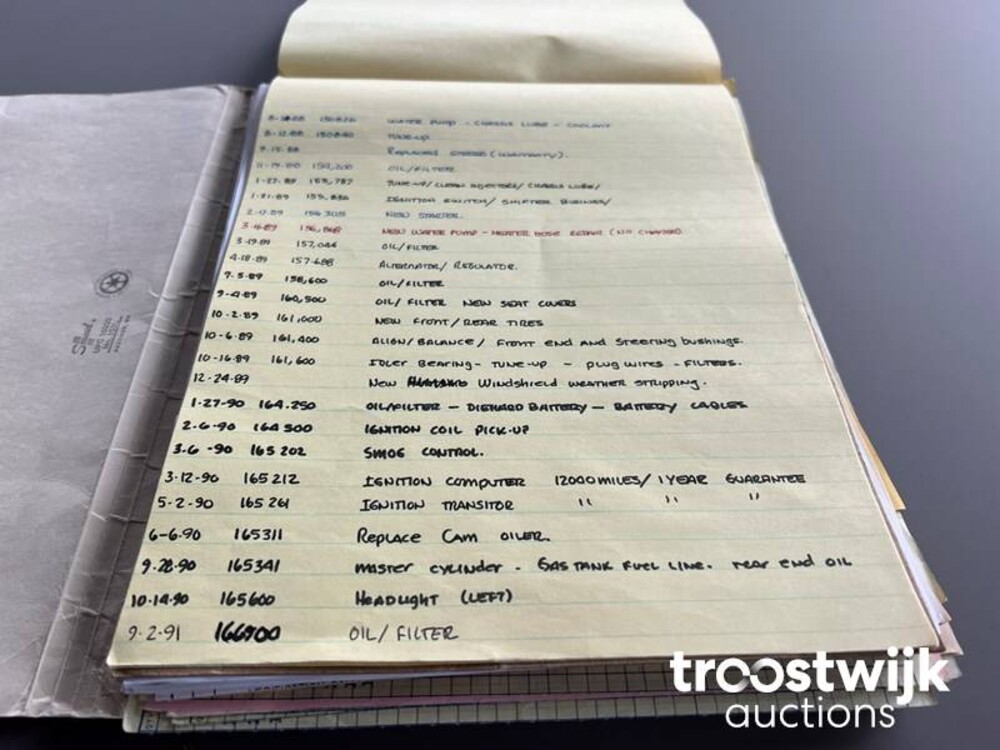 WATER PUMP - CHASSIS LUBE - COOLANT
8-12-88 150840 TUNE-UP
9-15-88 REPLACED (WARRANTY).
11-19-88 OIL/FILTER
1-27-89 155,787 TUNE-UP/CLEAN INJECTORS/CHASSIS LUBE/
1-31-89 155,830 IGNITION SWITCH/ SHIFTER BUSHING/
NEW STARTER.
NEW WATER PUMP - HEATER HOSE REPAIR (NO CHARGE)
3-19-89 157,046 OIL/FILTER
4-18-89 157-688 ALTERNATOR/ REGULATOR.
7-5-89 158,600 OIL/FILTER
9-4-89 160,500 OIL/ FILTER NEW SEAT COVERS
10-2-89 161,000 NEW FRONT/REAR TIRES
10-6-89 161,400 ALIGN/BALANCE/ FRONT END AND STEERING BUSHINGS.
10-16-89 161,600 IDLER BEARING- TUNE-UP - PLUG WIRES - FILTERS.
12-24-89 NEW WINDSHIELD WEATHER STRIPPING.
1-27-90 164.250 OIL/FILTER - DIEHARD BATTERY - BATTERY CABLES
2-6-90 164500 IGNITION COIL PICK-UP
3.6-90 165202 SMOG CONTROL.
3-12-90 165212 IGNITION COMPUTER 12000 MILES/ 1 YEAR GUARANTEE
5-2-90 165261 IGNITION TRANSITOR " " "
6-6.90 165311 REPLACE CAM OILER.
9.28-90 165341 MASTER CYLINDER - GAS TANK FUEL LINE. REAR END OIL
10-14-90 165600 HEADLIGHT (LEFT)
9-2-91 OIL/FILTER
troostwijk
auctions